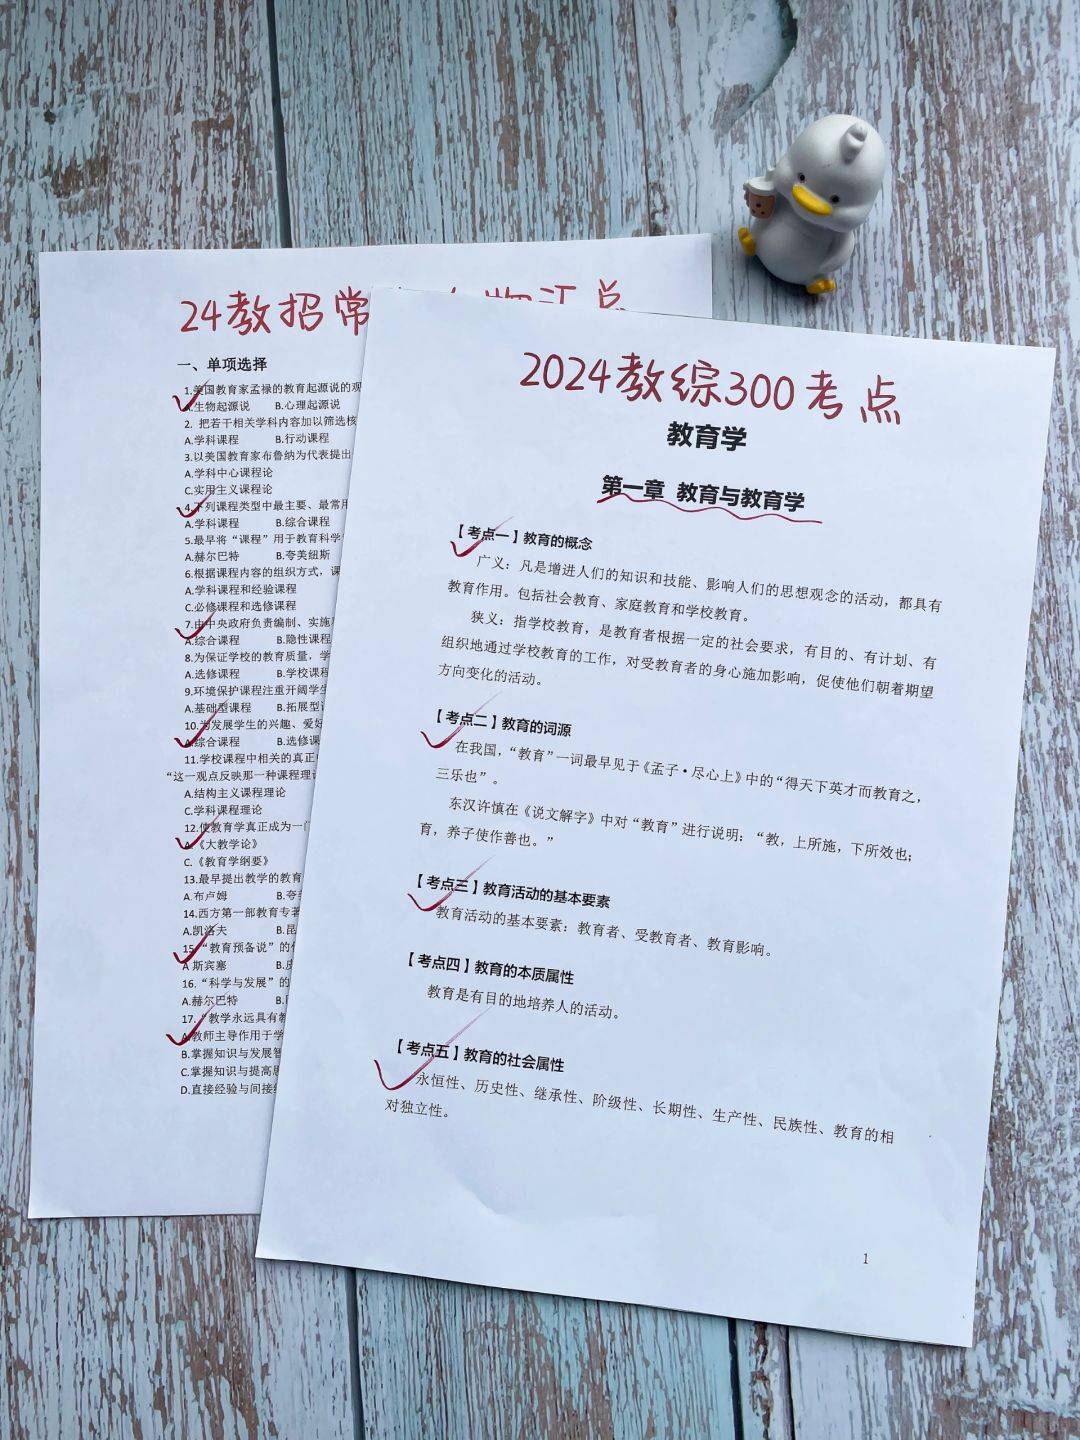 24教招常
一、单项选择
1.美国教育家孟禄的教育起源说的观
A.生物起源说 B.心理起源说
2. 把若干相关学科内容加以筛选核
A.学科课程 B.行动课程
3.以美国教育家布鲁纳为代表提出
A.学科中心课程论
C.实用主义课程论
4.下列课程类型中最主要、最常用
A.学科课程 B.综合课程
5.最早将“课程”用于教育科学
A.赫尔巴特 B.夸美纽斯
6.根据课程内容的组织方式，课
A.学科课程和经验课程
C.必修课程和选修课程
7.由中央政府负责编制、实施
A.综合课程 B.隐性课程
8.为保证学校的教育质量，学
A.选修课程 B.学校课程
9.环境保护课程注重开阔学生
A.基础型课程 B.拓展型
10.为发展学生的兴趣、爱好
A.综合课程 B.选修课
11.学校课程中相关的真正
“这一观点反映那一种课程理
A.结构主义课程理论
C.学科课程理论
12.使教育学真正成为一门
A.《大教学论》
C.《教育学纲要》
13.最早提出教学的教育
A.布卢姆 B.夸美
14.西方第一部教育专著
A.凯洛夫 B.昆
15.“教育预备说”的
A 斯宾塞 B.
16.“科学与发展”的
A.赫尔巴特 B.
17.“教学永远具有教
A.教师主导作用于学
B.掌握知识与发展智
C.掌握知识与提高思
D.直接经验与间接
2024教综300考点
教育学
第一章 教育与教育学
【考点一】教育的概念
广义：凡是增进人们的知识和技能、影响人们的思想观念的活动，都具有
教育作用。包括社会教育、家庭教育和学校教育。
狭义：指学校教育，是教育者根据一定的社会要求，有目的、有计划、有
组织地通过学校教育的工作，对受教育者的身心施加影响，促使他们朝着期望
方向变化的活动。
【考点二】教育的词源
在我国，“教育”一词最早见于《孟子·尽心上》中的“得天下英才而教育之，
三乐也”。
东汉许慎在《说文解字》中对“教育”进行说明：“教，上所施，下所效也；
育，养子使作善也。”
【考点三】教育活动的基本要素
教育活动的基本要素：教育者、受教育者、教育影响。
【考点四】教育的本质属性
教育是有目的地培养人的活动。
【考点五】教育的社会属性
永恒性、历史性、继承性、阶级性、长期性、生产性、民族性、教育的相
对独立性。
1